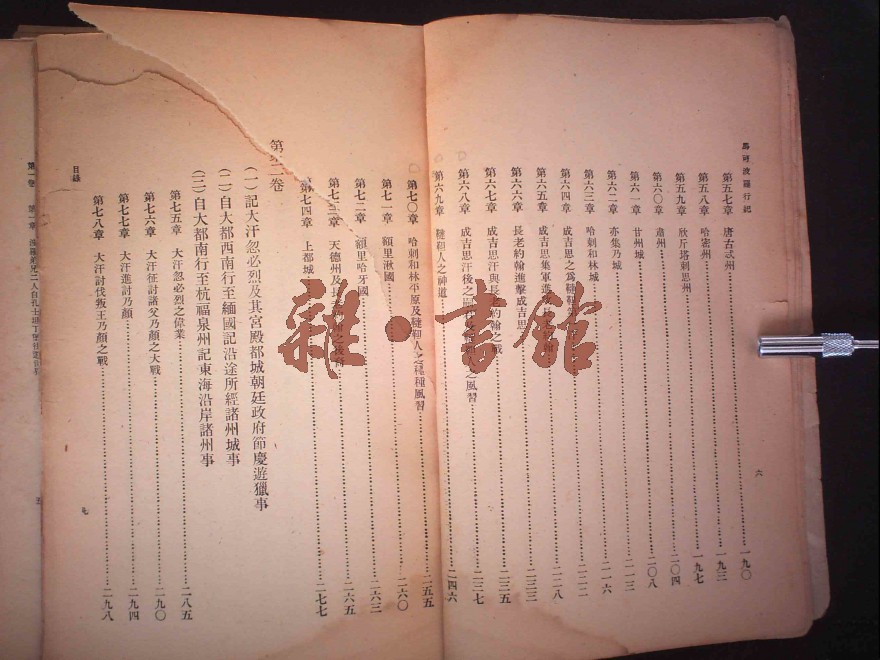 馬可波羅行紀
第五七章 唐古忒州 一九〇
第五八章 哈密州 一九三
第五九章 欣斤塔剌思州 一九七
第六〇章 肅州 二〇四
第六一章 甘州城 二〇八
第六二章 亦集乃城 二一三
第六三章 哈剌和林城 二一六
第六四章 成吉思之為韃靼 二二二
第六五章 成吉思集軍進 二二八
第六六章 長老約翰進擊成吉思 二三三
第六七章 成吉思汗與長老約翰之戰 二三五
第六八章 成吉思汗後之 之風習 二三七
第六九章 韃靼人之神道 二四六
六
第七〇章 哈剌和林平原及韃靼人之種種風習 二五五
第七一章 額里湫國 二六〇
第七二章 額里哈牙國 二六三
第七三章 天德州及長 二六五
第七四章 上都城 二七七
第二卷
(一)記大汗忽必烈及其宮殿都城朝廷政府節慶遊獵事
(二)自大都西南行至緬國記沿途所經諸州城事
(三)自大都南行至杭福泉州記東海沿岸諸州事
第七五章 大汗忽必烈之偉業 二八五
第七六章 大汗征討諸父乃顏之大戰 二九〇
第七七章 大汗進討乃顏 二九四
第七八章 大汗討伐叛王乃顏之戰 二九八
目錄
七
第一卷 第一章
雜·書館